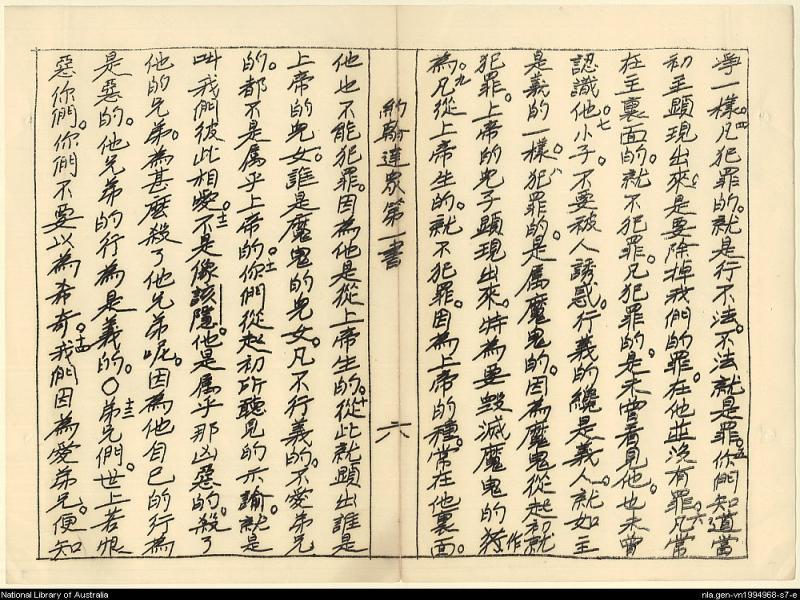 淨一樣。四凡犯罪的。就是行不法。不法就是罪。五你們知道當
初主顯現出來。是要除掉我們的罪。在他並沒有罪。六凡常
在主裏面的。就不犯罪。凡犯罪的。是未曾看見他。也未曾
認識他。七小子。不要被人誘惑。行義的纔是義人。就如主
是義的一樣。八犯罪的。是属魔鬼的。因為魔鬼從起初就
犯罪。上帝的兒子顯現出來。特為要毀滅魔鬼的作
為。九凡從上帝生的。就不犯罪。因為上帝的種。常在他裏面。
約翰達眾第一書
六
他也不能犯罪。因為他是從上帝生的。十從此就顯出誰是
上帝的兒女。誰是魔鬼的兒女。凡不行義的。不愛弟兄
的。都不是属乎上帝的。十一你們從起初所聽見的示諭。就是
叫我們彼此相愛。十二不是像該隱。他是属乎那凶惡的。殺了
他的兄弟。為甚麼殺了他兄弟呢。因為他自已的行為
是惡的。他兄弟的行為是義的。〇十三弟兄們。世上若恨
惡你們。你們不要以為希奇。十四我們因為愛弟兄。便知
National Library of Australia
nla.gen-vn1994968-s7-e